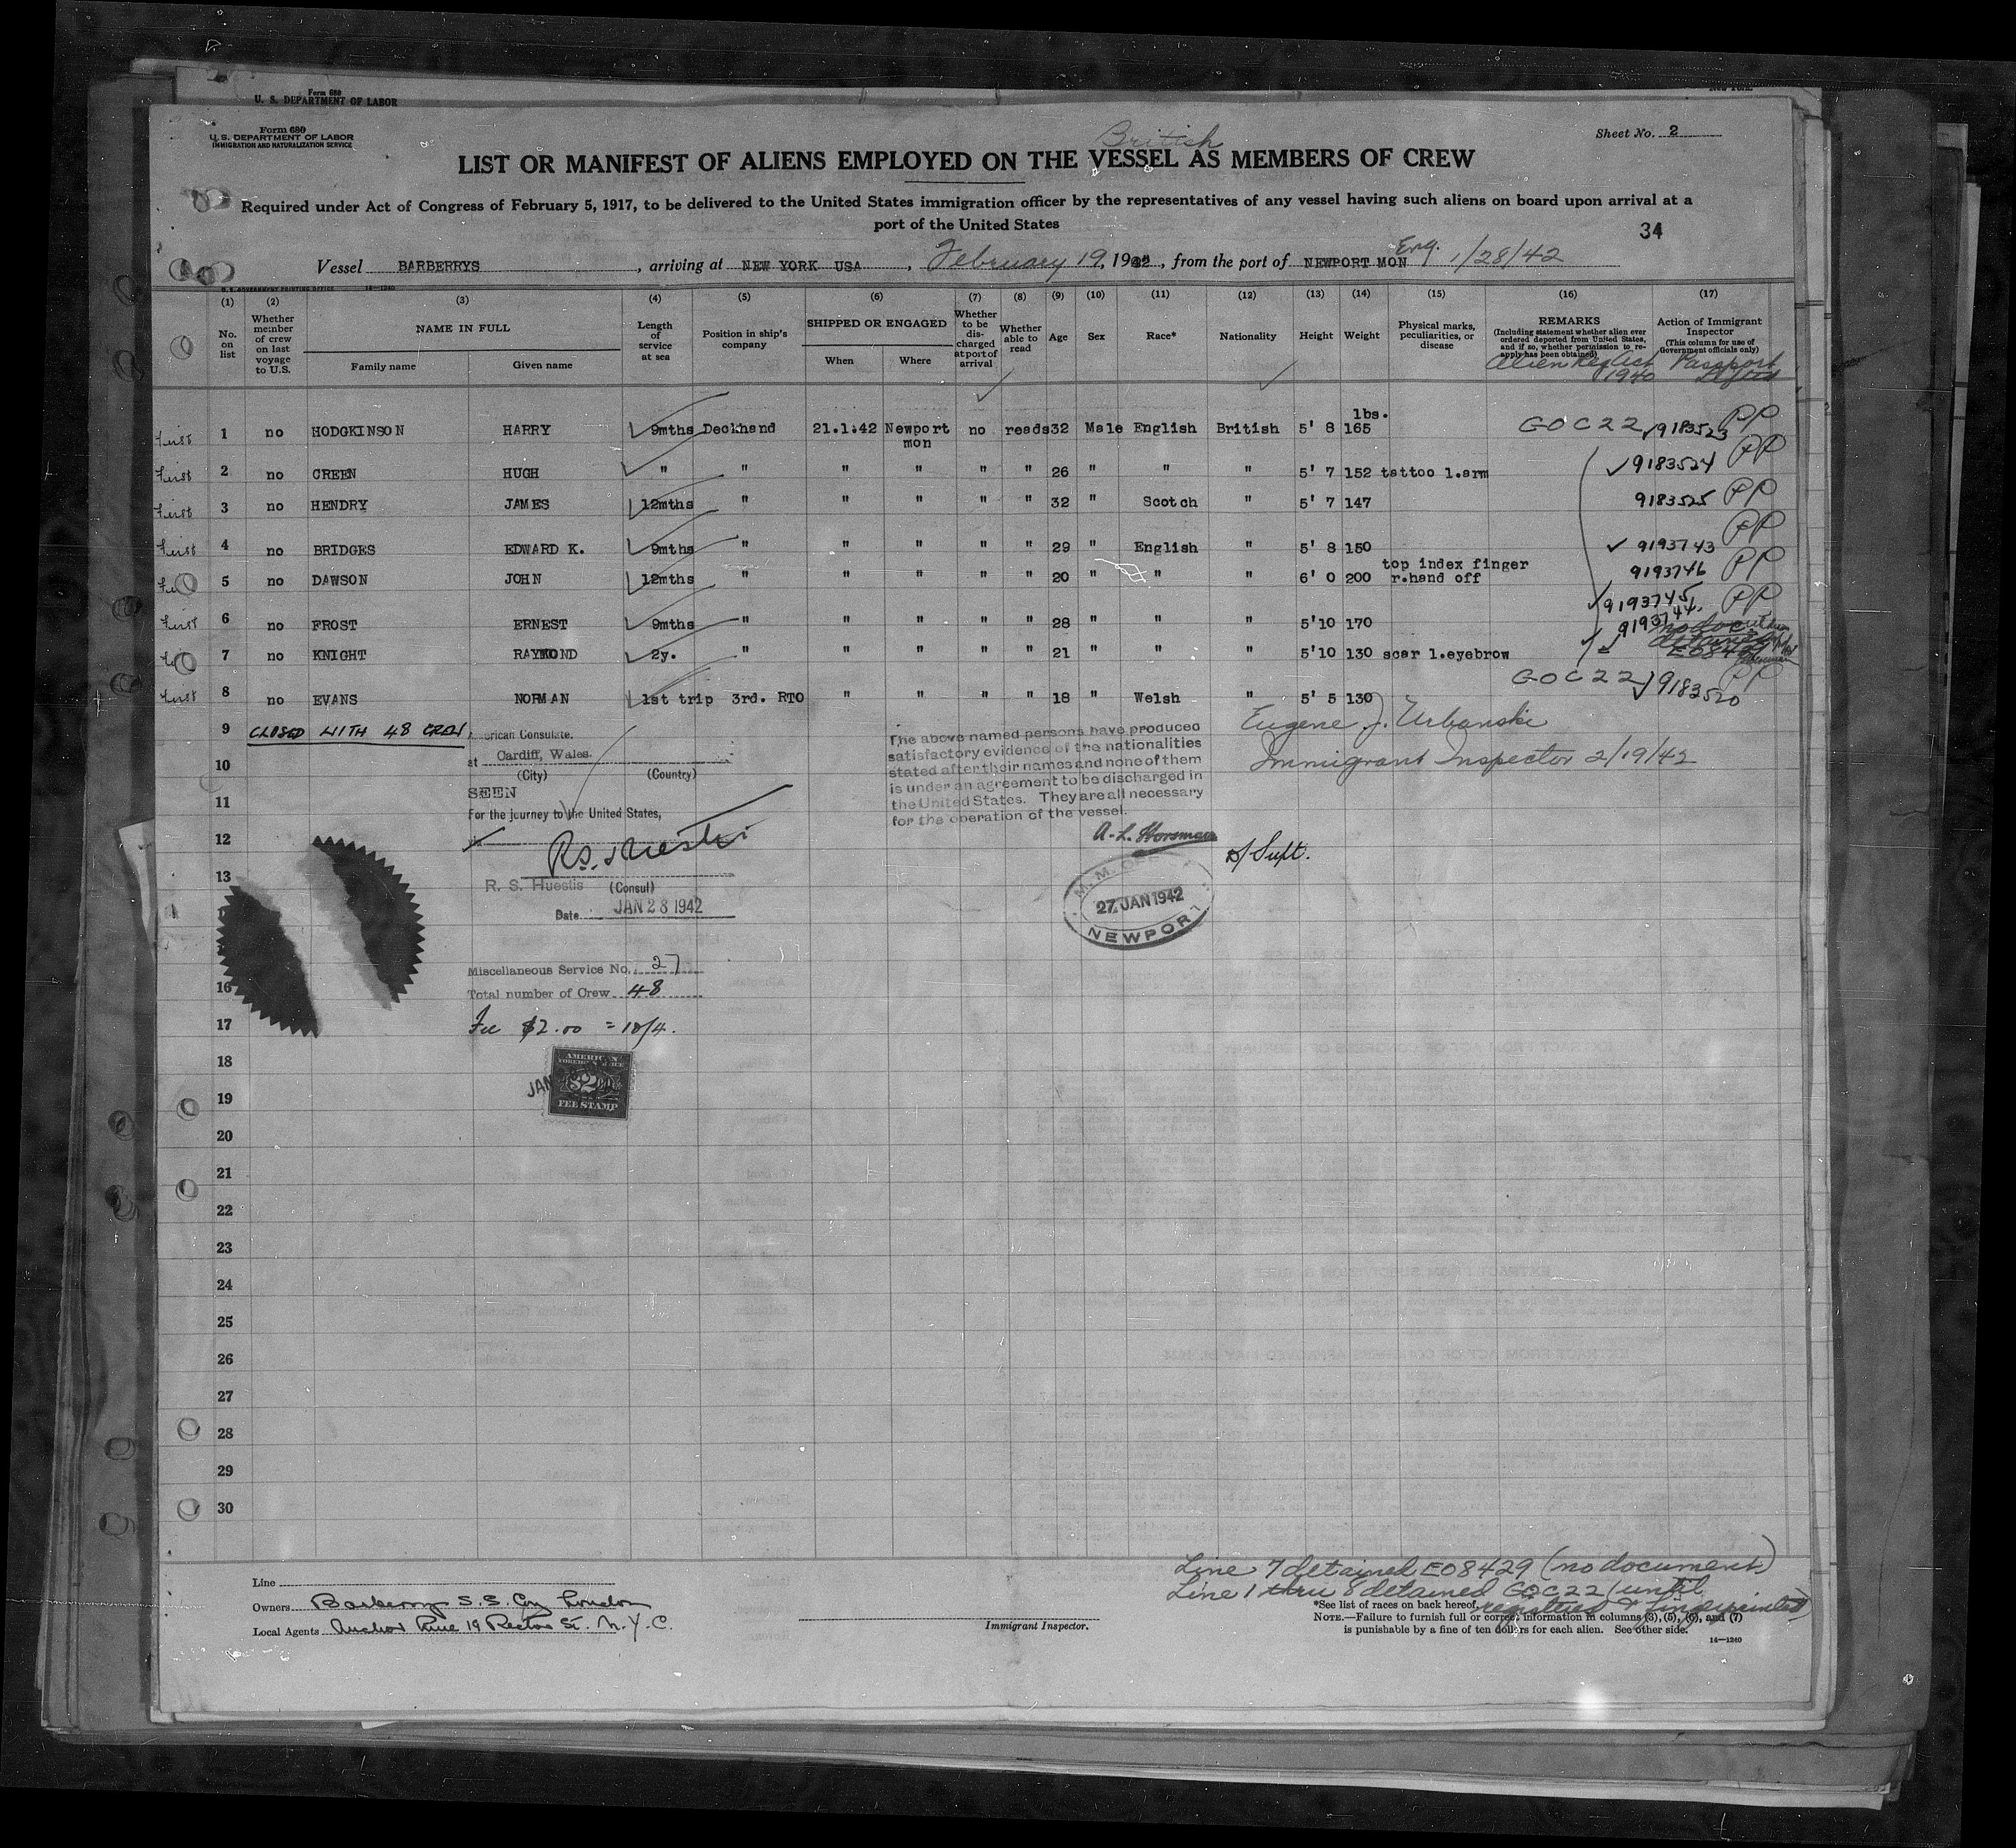 Form 680
U. S. DEPARTMENT OF LABOR
Form 680
U. S. DEPARTMENT OF LABOR
IMMIGRATION AND NATURALIZATION SERVICE
Sheet No. 2
British
LIST OR MANIFEST OF ALIENS EMPLOYED ON THE VESSEL AS MEMBERS OF CREW
Required under Act of Congress of February 5, 1917, to be delivered to the United States immigration officer by the representatives of any vessel having such aliens on board upon arrival at a
port of the United States
34
Vessel BARBERRYS, arriving at NEW YORK USA, February 19, 1942, from the port of NEWPORT MON Eng. 1/28/42
U. S. GOVERNMENT PRINTING OFFICE 14—1240
(1) (2) (3) (4) (5) (6) (7) (8) (9) (10) (11) (12) (13) (14) (15) (16) (17)
No. on list
Whether member of crew on last voyage to U.S.
NAME IN FULL
Family name Given name
Length of service at sea
Position in ship's company
SHIPPED OR ENGAGED
When Where
Whether to be discharged at port of arrival
Whether able to read
Age
Sex
Race*
Nationality
Height
Weight
Physical marks, peculiarities, or disease
REMARKS
(Including statement whether alien ever ordered deported from United States, and if so, whether permission to reapply has been obtained)
Alien Reg Act 1940
Action of Immigrant Inspector
(This column for use of Government officials only)
Passport
lbs.
first 1 no HODGKINSON HARRY 9mths Deckhand 21.1.42 Newport mon no reads 32 Male English British 5' 8 165 GOC22 9183523 PP
first 2 no CREEN HUGH " " " " " " 26 " " " 5' 7 152 tattoo l.arm 9183524 PP
first 3 no HENDRY JAMES 12mths " " " " " 32 " Scotch " 5' 7 147 9183525 PP
first 4 no BRIDGES EDWARD K. 9mths " " " " " 29 " English " 5' 8 150 9193743 PP
5 no DAWSON JOHN 12mths " " " " " 20 " " " 6' 0 200 top index finger r.hand off 9193746 PP
first 6 no FROST ERNEST 9mths " " " " " 28 " " " 5'10 170 9193745 PP
7 no KNIGHT RAYMOND 2y. " " " " " 21 " " " 5'10 130 scar l.eyebrow 9193744 E08429
first 8 no EVANS NORMAN 1st trip 3rd. RTO " " " " 18 " Welsh " 5' 5 130 GOC22 9183520 PP
9 CLOSED WITH 48 CREW
10
11
12
13
16
17
18
19
20
21
22
23
24
25
26
27
28
29
30
American Consulate.
at Cardiff, Wales.
(City) (Country)
SEEN
For the journey to the United States,
R. S. Huestis (Consul)
Date JAN 28 1942
Miscellaneous Service No. 27
Total number of Crew 48
Fee $2.00 = 10/4.
AMERICAN
FOREIGN SERVICE
$2.00
FEE STAMP
JAN
The above named persons have produced
satisfactory evidence of the nationalities
stated after their names and none of them
is under an agreement to be discharged in
the United States. They are all necessary
for the operation of the vessel.
A. L. Horsman
D/Supt.
27 JAN 1942
NEWPORT
Eugene J. Urbanski
Immigrant Inspector 2/19/42
Line 7 detained E08429 (no document)
Line 1 thru 8 detained GOC22 (until
registered & fingerprinted)
Line
Owners Barberry S.S. Coy London
Local Agents Anchor Line 19 Rector St. N.Y.C.
Immigrant Inspector.
*See list of races on back hereof.
NOTE.—Failure to furnish full or correct information in columns (3), (5), (6), and (7)
is punishable by a fine of ten dollars for each alien. See other side.
14—1240